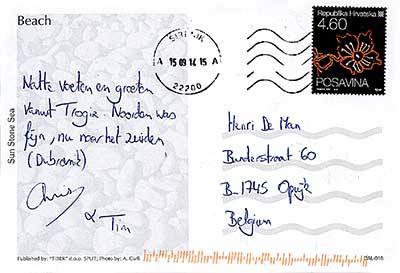 Beach
Sun Stone Sea
Natte voeten en groeten
vanuit Trogir. Noorden was
fijn, nu naar het zuiden
(Dubrovnik)
Chris
& Tim
Published by: "TISEK" d.o.o. SPLIT; Photo by: A. Ćiefli
ŠIBENIK
A 15 09 14 15 A
22200
Republika Hrvatska
4.60
POSAVINA
Henri De Man
Bunderstraat 60
B-1745 Opwijk
Belgium
DAL-015